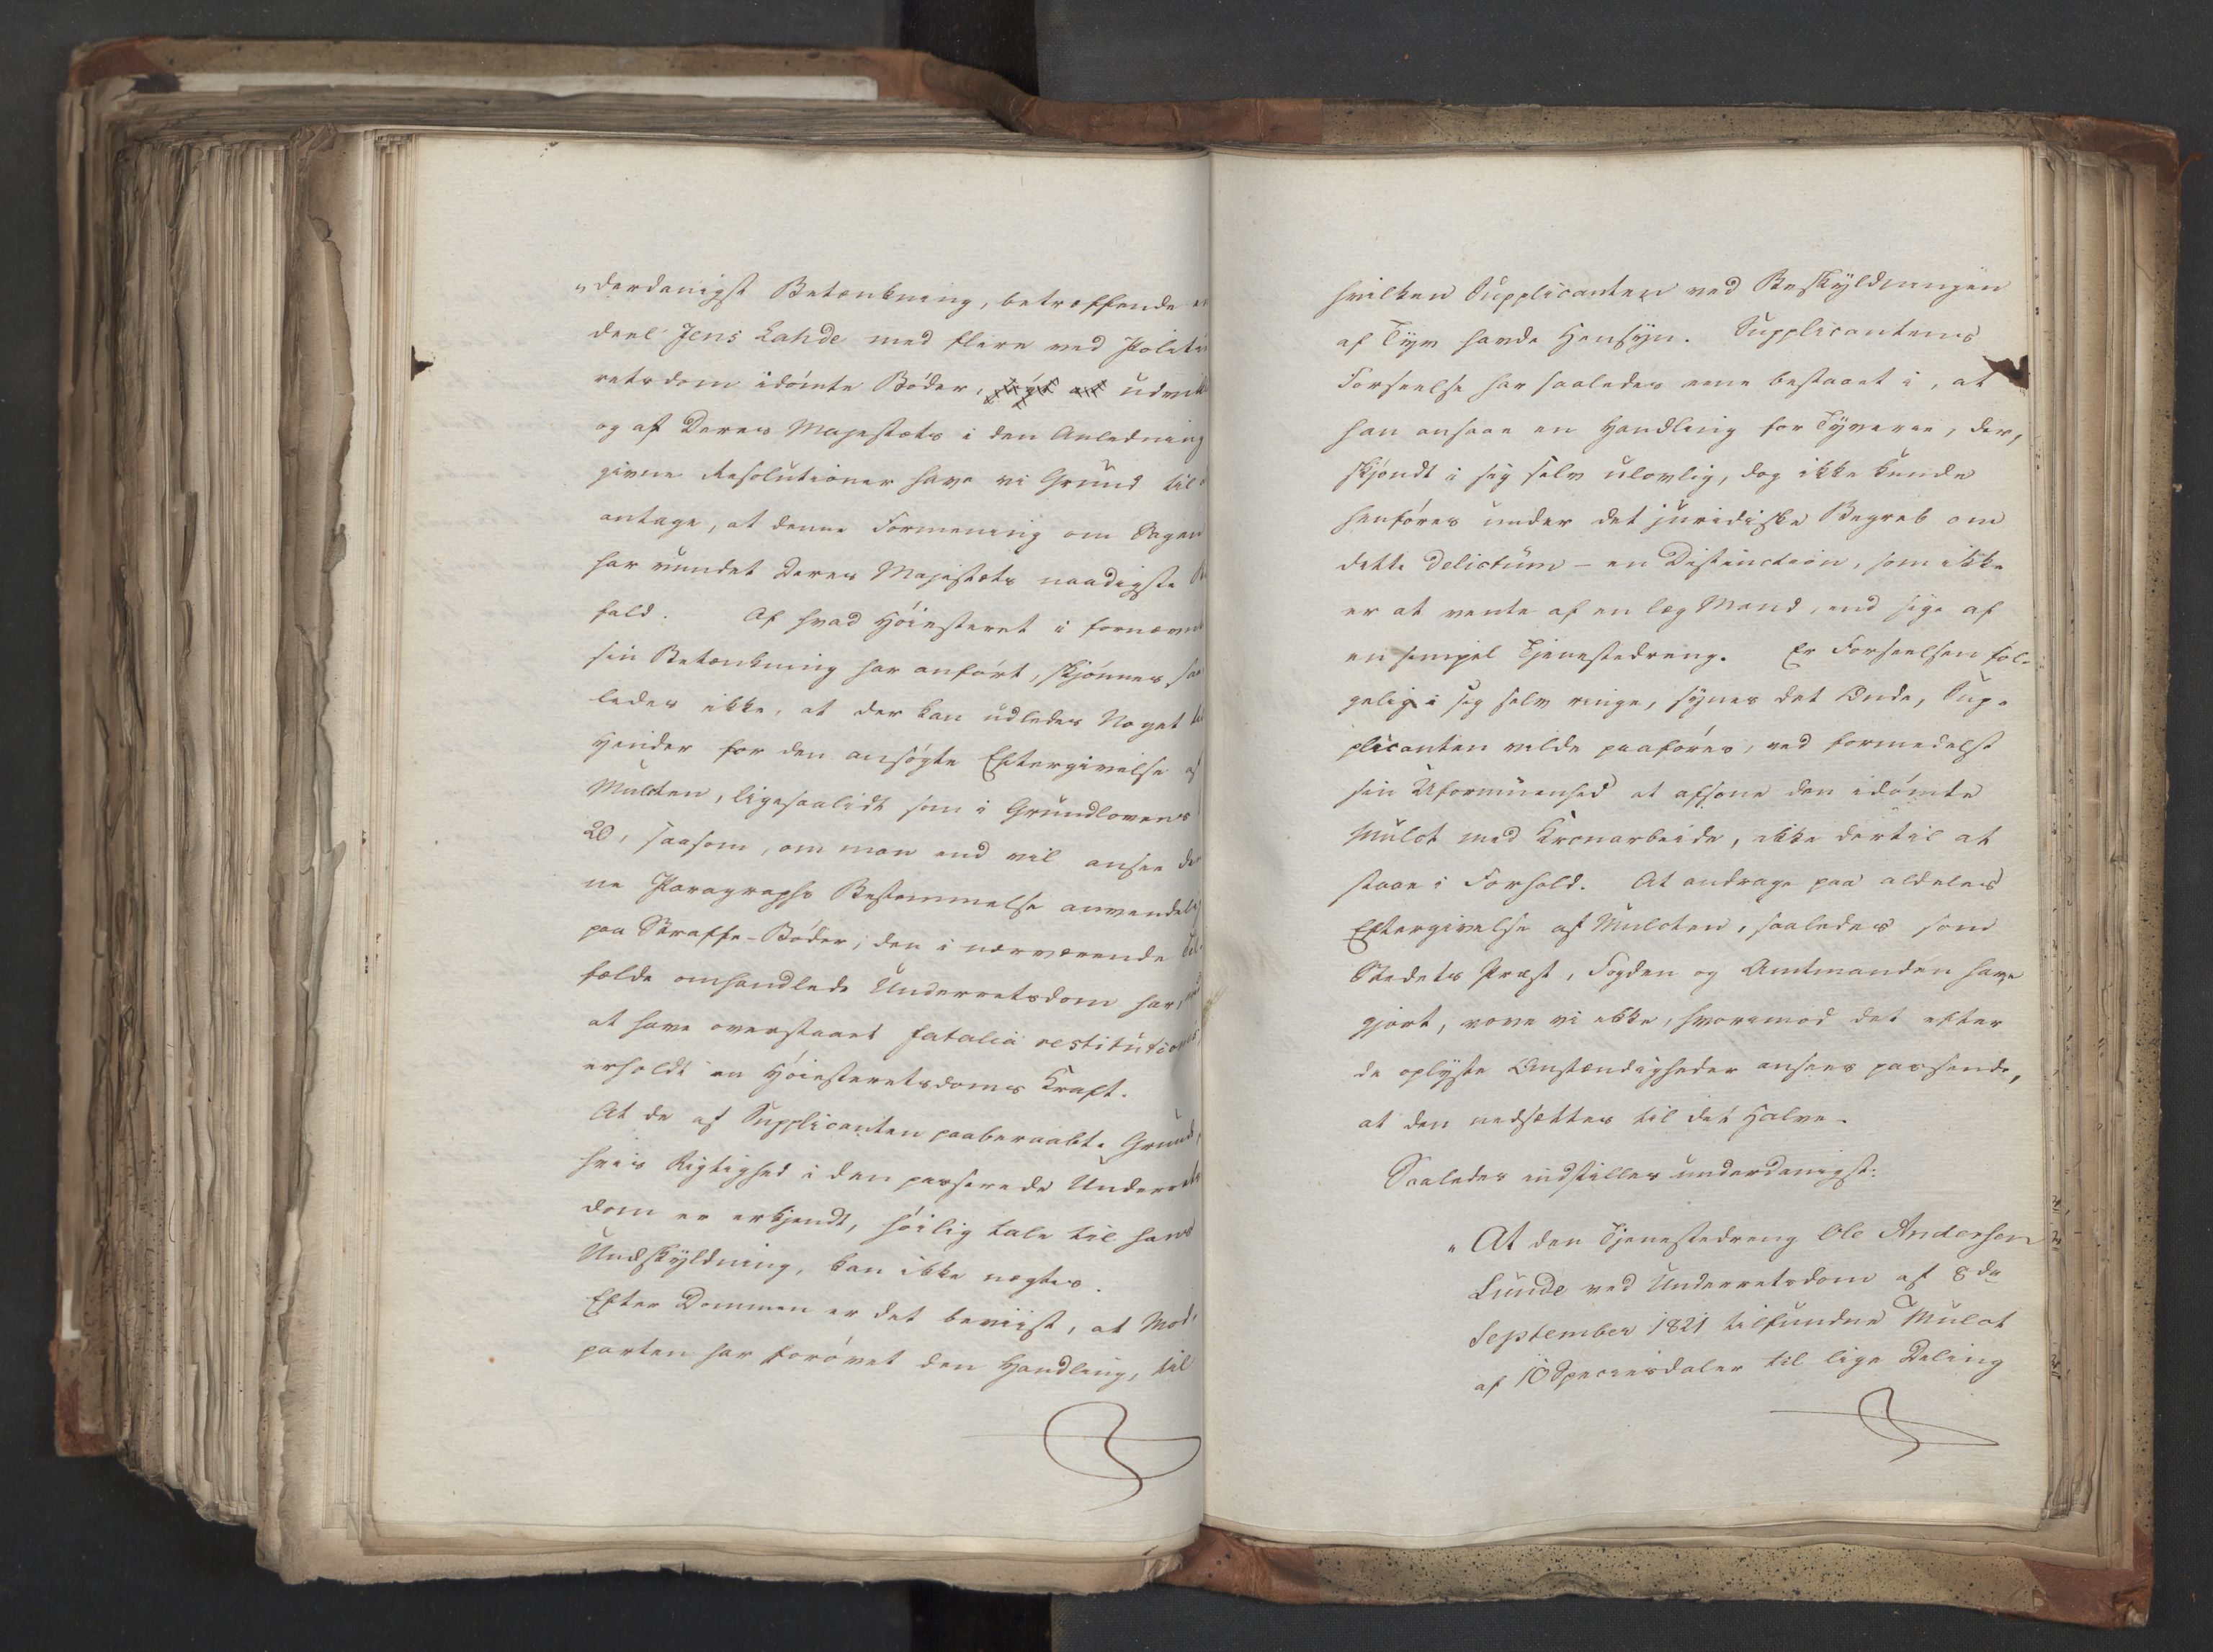 "derdanigst Betænkning, betræffende en
deel Jens Lahde med flere ved Politi
retsdom idømte Bøder, udvik
og af Deres Majestæts i den Anledning
givne Resolutioner have vi Grund til
antage, at denne Formening om Sagen
har vundet Deres Majestæts naadigste Bi
fald. Af hvad Høiesteret i fornævnte
sin Betænkning har anført, skjønnes saa
ledes ikke, at der kan udledes Noget til
Hinder for den ansøgte Eftergivelse af
Mulcten, ligesaalidt som i Grundlovens
20, saasom, om man end vil ansee den
ne Paragraphs Bestemmelse anvendelig
paa Straffe-Bøder, den i nærværende Til-
fælde omhandlede Underretsdom har, ved
at have overstaaet fatalia restitutionis,
erholdt en Høiesteretsdoms Kraft.
At de af Supplicanten paaberaabte Grunde,
hvis Rigtighed i den passerede Underrets
dom er erkjendt, høilig tale til hans
Undskyldning, kan ikke nægtes.
Efter Dommen er det beviist, at Mod-
parten har forøvet den Handling, til
hvilken Supplicanten ved Beskyldningen
af Tyv havde Hensyn. Supplicantens
Forseelse har saaledes ene bestaaet i, at
han ansaae en Handling for Tyverie, der,
skjøndt i sig selv ulovlig, dog ikke kunde
henføres under det juridiske Begreb om
dette Delictum - en Distinction, som ikke
er at vente af en læg Mand, end sige af
en simpel Tjenestedreng. Er Forseelsen føl-
gelig i sig selv ringe, synes det Onde, Sup-
plicanten vilde paaføres, ved formedelst
sin Uformuenhed at afsone den idømte
Mulct med Kronarbeide, ikke dertil at
staae i Forhold. At andrage paa aldeles
Eftergivelse af Mulcten, saaledes som
Stedets Præst, Fogden og Amtmanden have
gjort, vove vi ikke, hvorimod det efter
de oplyste Omstændigheder ansees passende,
at den nedsættes til det Halve.
Saaledes indstilles underdanigst:
"At den Tjenestedreng Ole Andersen
Lunde ved Underretsdom af 8de
September 1821 tilfundne Mulct
af 10 Speciesdaler til lige Deling